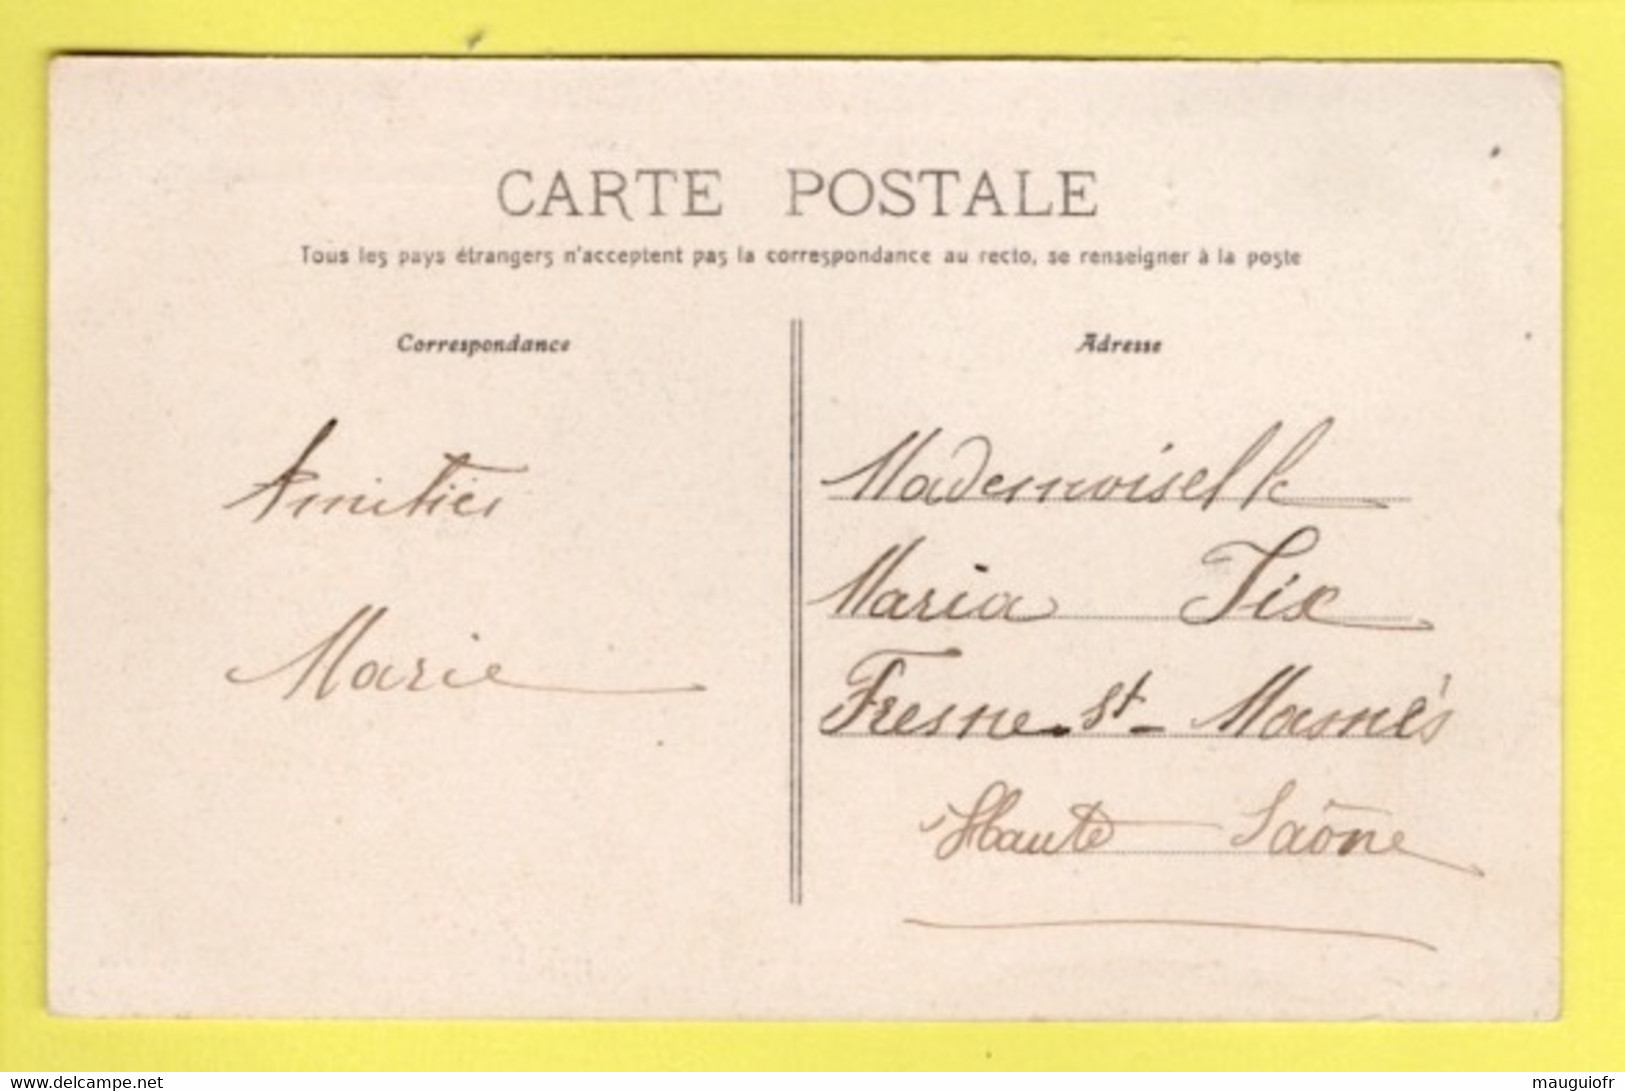 CARTE POSTALE
Tous les pays étrangers n'acceptent pas la correspondance au recto, se renseigner à la poste
Correspondance
Adresse
Amitiés
Marie
Mademoiselle
Maria
Fresne-St-Mamès
Haute Saône
www.delcampe.net
mauguiofr